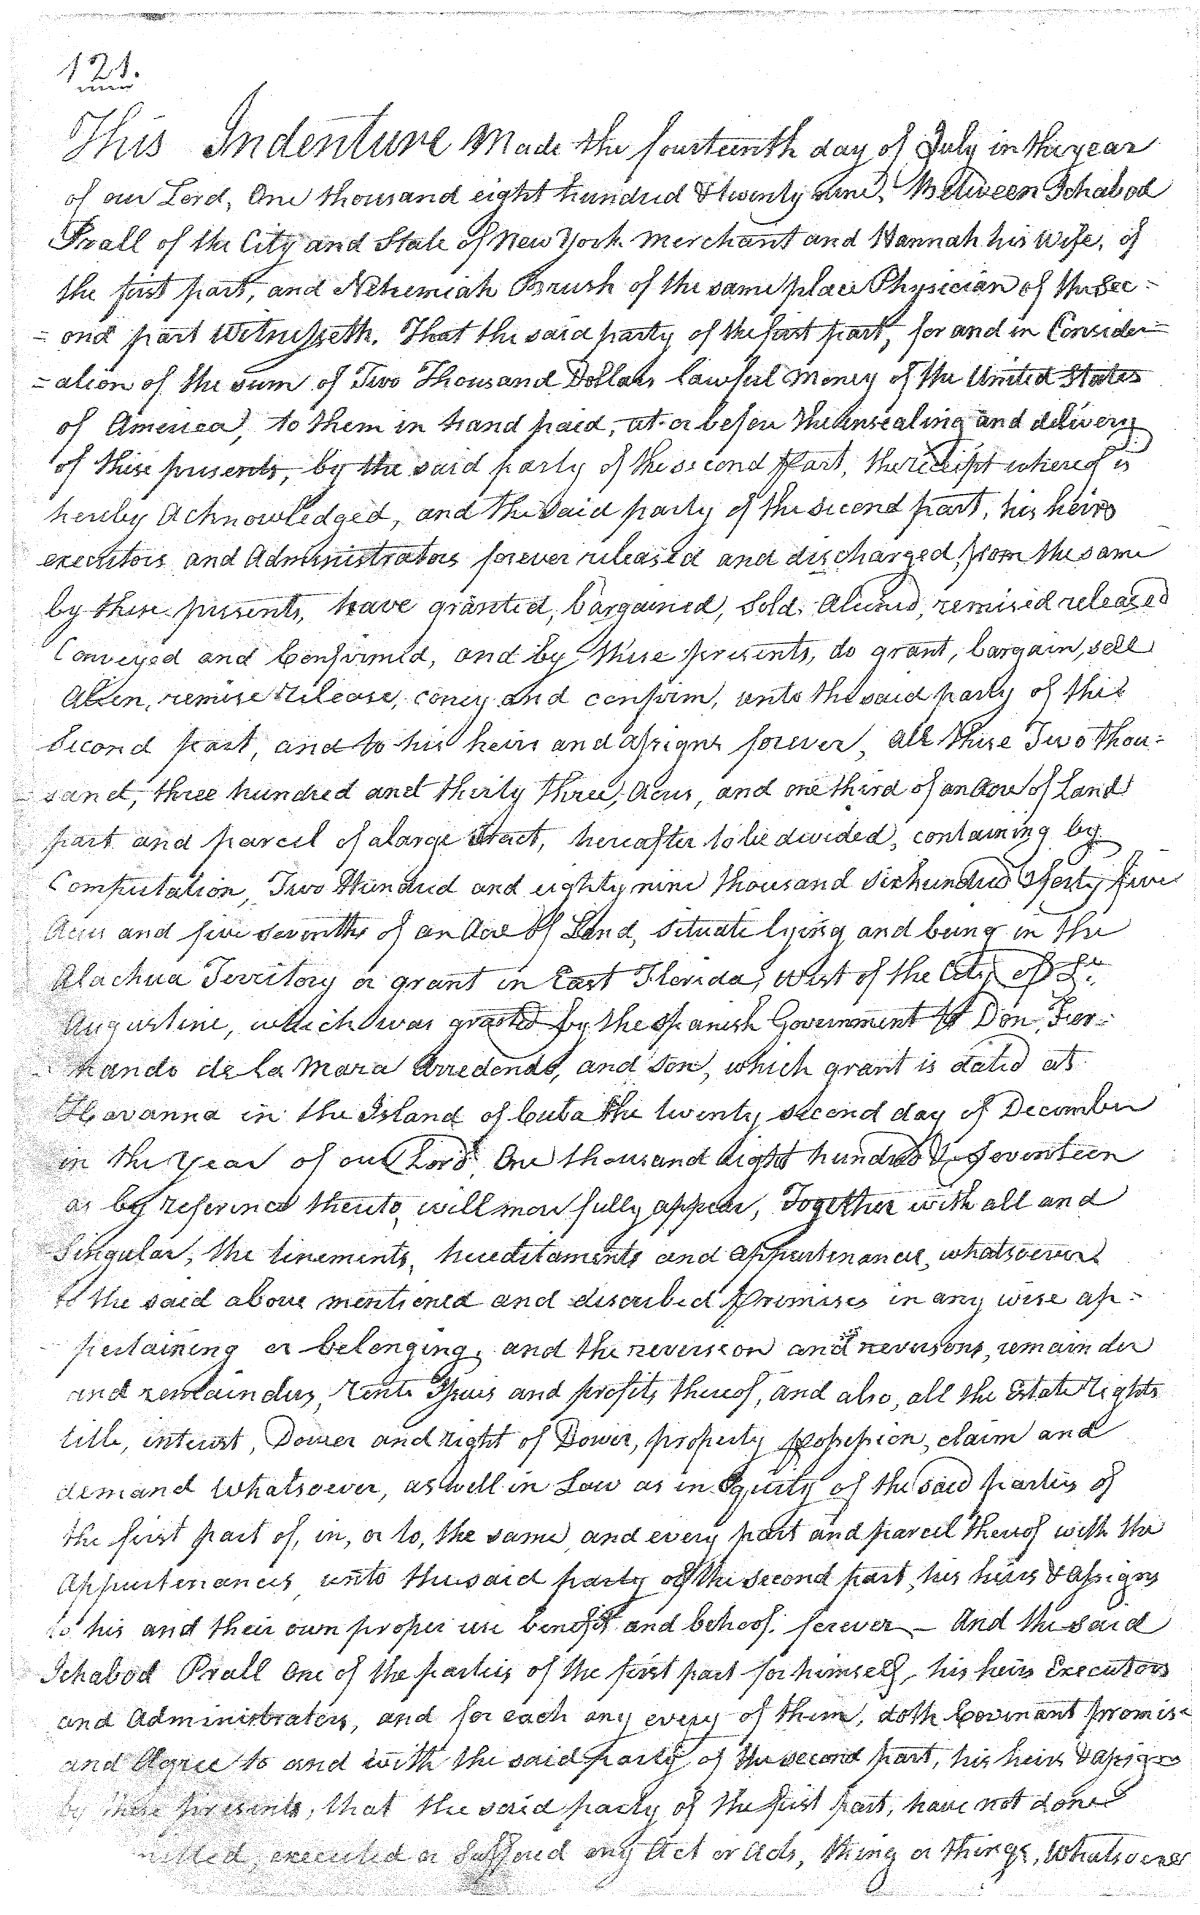 121.
This Indenture Made the fourteenth day of July in the year
of our Lord, One thousand eight hundred & twenty nine, Between Ichabod
Prall of the City and State of New York Merchant and Hannah his Wife, of
the first part, and Nehemiah Brush of the same place Physician of the Sec=
=ond part Witnesseth. That the said party of the first part, for and in Consider=
=ation of the sum of Two Thousand Dollars lawful Money of the United States
of America, to them in hand paid, at or before the ensealing and delivery
of these presents, by the said party of the second part, the receipt whereof is
hereby Acknowledged, and the said party of the second part, his heirs
executors and Administrators forever released and discharged, from the same
by these presents, have granted, bargained, Sold, Aliened, remised released
Conveyed and Confirmed, and by these presents, do grant, bargain, sell
Alien, remise release, coney and confirm, unto the said party of the
Second part, and to his heirs and assigns forever, all these Two thou=
sand, three hundred and thirty three, Acres, and one third of an Acre of Land
part and parcel of a large tract, hereafter to be divided, containing by
Computation, Two Hundred and eighty nine thousand six hundred & forty five
Acres and five sevenths of an Acre of Land, situate lying and being in the
Alachua Territory or grant in East Florida, West of the City of St.
Augustine, which was granted by the Spanish Government to Don Fer=
nando de la Maza Arredondo, and son, which grant is dated at
Havanna in the Island of Cuba the twenty second day of December
in the Year of our Lord One thousand eight hundred & Seventeen
as by reference thereto, will more fully appear, Together with all and
Singular, the tenements, hereditaments and appurtenances, whatsoever
to the said above mentioned and described Premises in any wise ap=
pertaining or belonging, and the reversion and reversions, remainder
and remainders, rents Issues and profits thereof, and also, all the Estate rights
title, interest, Dower and right of Dower, property possession, claim and
demand Whatsoever, as well in Law as in Equity of the said parties of
the first part of, in, or to, the same, and every part and parcel thereof with the
Appurtenances, unto the said party of the second part, his heirs & assigns
to his and their own proper use benefit and behoof forever – And the said
Ichabod Prall One of the parties of the first part for himself, his heirs Executors
and Administrators, and for each any every of them, doth Covenant promise
and Agree to and with the said party of the second part, his heirs & assigns
by these presents, that the said party of the first part, have not done
executed or Suffered any Act or Acts, thing or things, Whatsoever